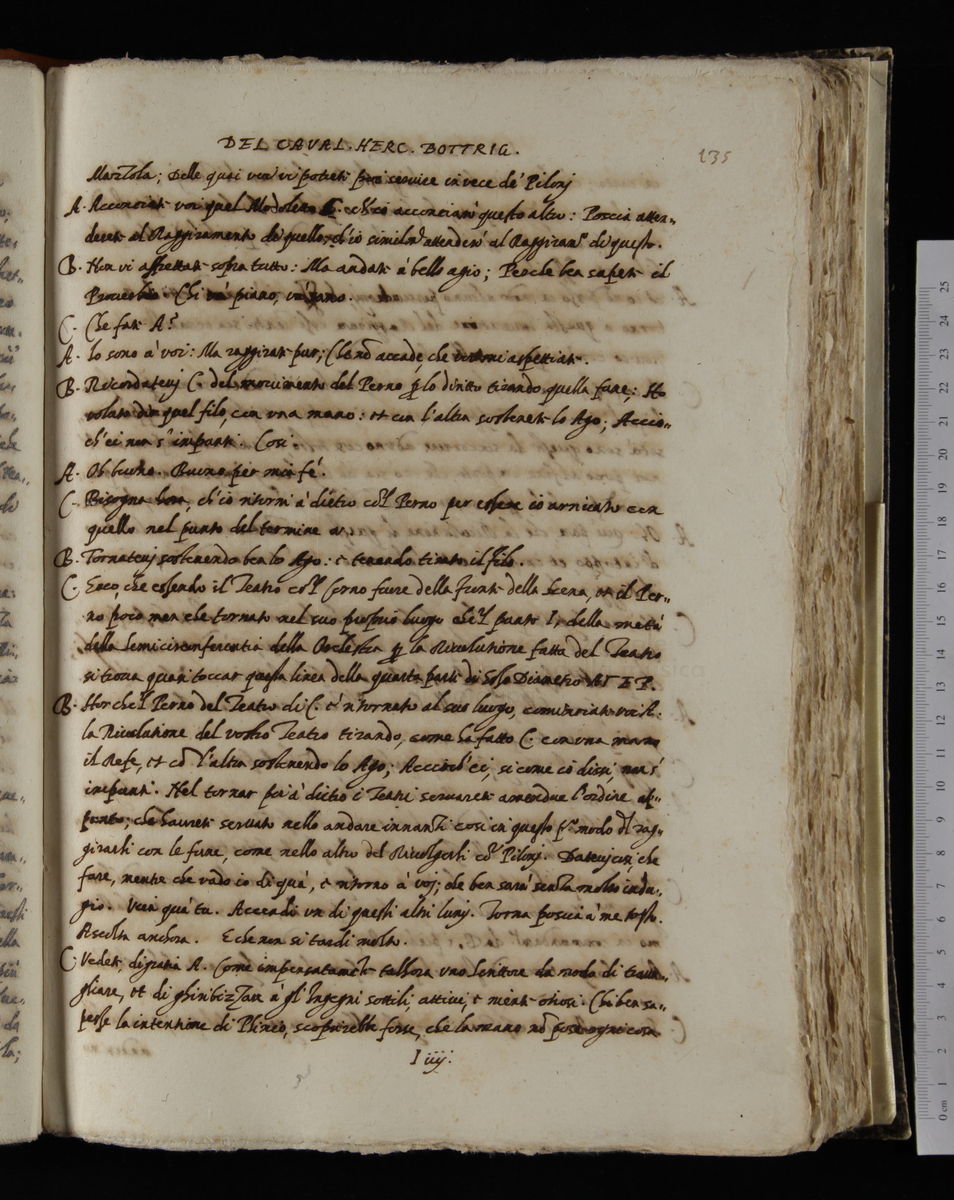 DEL CAVAL. HERC. BOTTRIG.
135
Mazzola; Delle quai ven vi potreti servire in vece de' Pilonj
A. Acconciati voi quel Modoletto C. ch'io acconciarò questo altro: Poscia atten=
dereti al Raggiramento di quello, ch'io similm.te attenderò al Raggiram.to di questo.
B. Non vi affrettati sopra tutto: Ma andati à bello agio; Perche ben sapeti il
Proverbio. Chi và piano, và sano.
C. Che fati A?
A. Io sono à voi: Ma raggirati pur; Che nō accade, che voi mi aspettiati.
B. Ricordatevj C. del movimento del Perno p lo diritto tirando quella fune; Ho
volato di quel filo, con una mano: et con l'altra sosteneti lo Ago; Accio=
ch'ei non s'imponti. Cosi.
A. Oh buono. Buono per mia fé.
C. Bisogna hora, ch'io ritorni à dietro co'l Perno per essere io arrivato con
quello nel punto del termine
B. Tornatevj sostenendo ben lo Ago: e tenendo tirato il filo.
C. Ecco, che essendo il Teatro co'l Corno fuore della fronte della Scena, et il Per=
no poco men che tornato nel suo proprio luogo che'l punto I, della metà
della Semicirconferentia della Orchestra p la Rivolutione fatta del Teatro
si trova quasi toccar questa linea della quarta parti di Solo Diametro
B. Hor che'l Perno del Teatro di C. è ritornato al suo luogo, cominciati voi A.
la Rivolutione del vostro Teatro tirando, come ha fatto C. con una mano
il Refe, et cō l'altra sostenendo lo Ago; Acciòch'ei, si come io dissi, non s'
imponti. Nel tornar poi à dietro i Teatri servareti amendue l'ordine ap=
punto; che havreti servato nello andare innanzi cosi in questo p.o modo di rag=
girarli con le fune, come nello altro del Rivolgerli co' Pilonj. Datevj cosi che
fare, mentre che vado io di quà, e ritorno à voj; che ben sarà senza molto indu=
gio. Vien quà tu. Accendi un di questi altri lumj. Torna poscia à me tosto.
Ascolta anchora. E che non si tardi molto.
C. Vedeti, di gratia A. Come impensatamēte talhora uno Scrittore da modo di trava=
gliare, et di ghiribizzare à gl'Ingegni sottili, attivi, e menti otiosi. Chi ben sa=
pesse la intentione di Plineo, scoprirebbe forse, che la mano nō pose ogni cosa
I iiij.